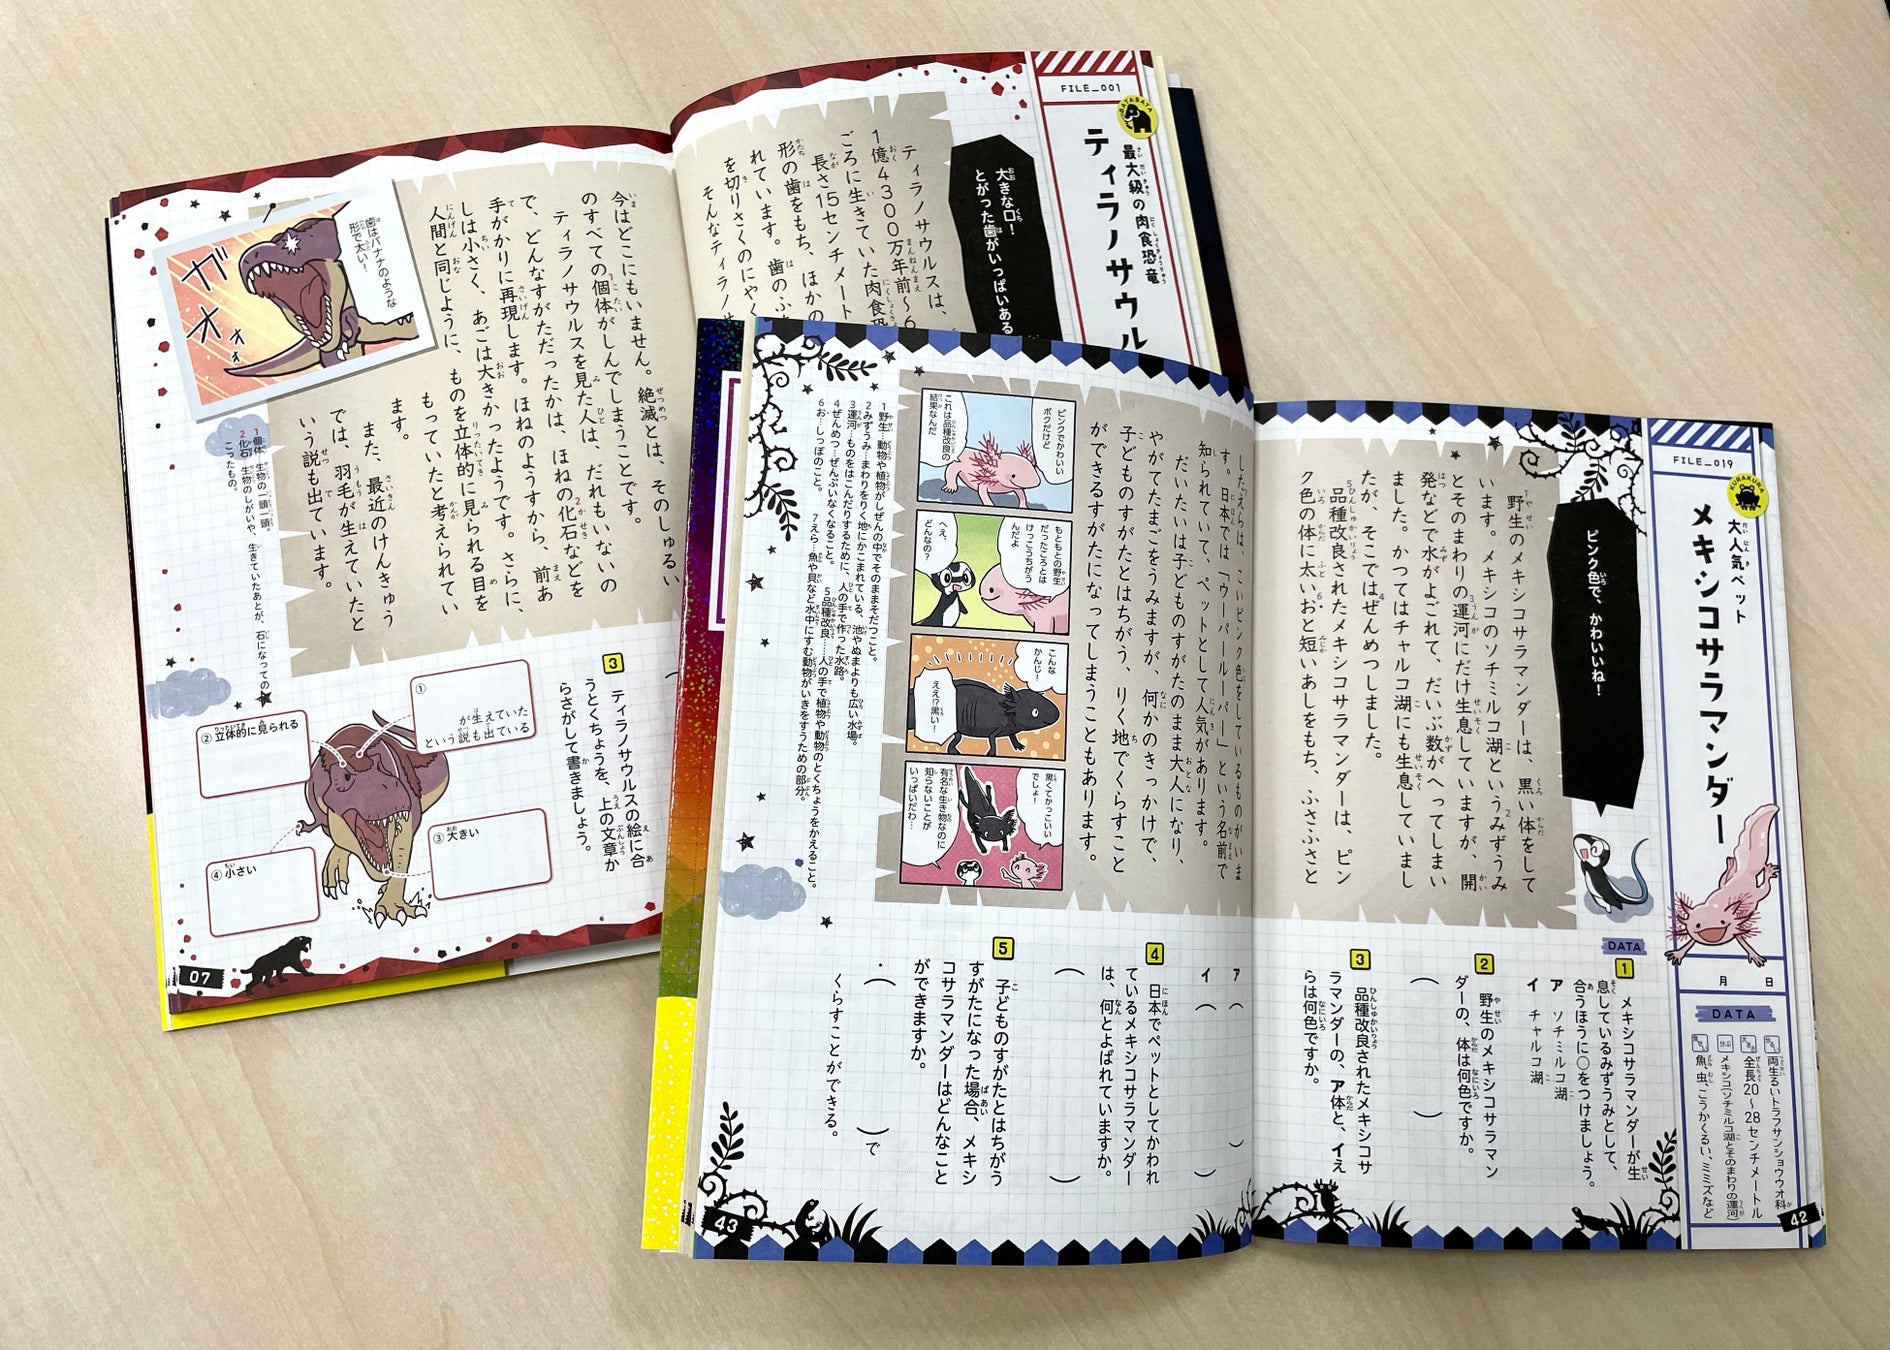 FILE_001
BATABATA
最大級の肉食恐竜
ティラノサウル
大きな口！
とがった歯がいっぱいある
ティラノサウルスは、
1億4300万年前〜6
ごろに生きていた肉食恐
長さ15センチメート
形の歯をもち、ほかの
れています。歯のふ
を切りさくのにやく
そんなティラノサ
今はどこにもいません。絶滅とは、そのしゅるい
のすべての個体がしんでしまうことです。
ティラノサウルスを見た人は、だれもいないの
で、どんなすがただったかは、ほねの化石などを
手がかりに再現します。ほねのようすから、前あ
しは小さく、あごは大きかったようです。さらに、
人間と同じように、ものを立体的に見られる目を
もっていたと考えられてい
ます。
また、最近のけんきゅう
では、羽毛が生えていたと
いう説も出ています。
歯はバナナのような
形で太い！
ガオオォォ
1個体 生物の一頭一頭。
2化石 生物のしがいや、生きていたあとが、石になっての
こったもの。
3
ティラノサウルスの絵に合
うとくちょうを、上の文章か
らさがして書きましょう。
①
が生えていた
という説も出ている
②立体的に見られる
③大きい
④小さい
07
FILE_019
KURAKURA
大人気ペット
メキシコサラマンダー
ピンク色で、かわいいね！
野生のメキシコサラマンダーは、黒い体をして
います。メキシコのソチミルコ湖というみずうみ
とそのまわりの運河にだけ生息していますが、開
発などで水がよごれて、だいぶ数がへってしまい
ました。かつてはチャルコ湖にも生息していまし
たが、そこではぜんめつしました。
品種改良されたメキシコサラマンダーは、ピン
ク色の体に太いおと短いあしをもち、ふさふさと
したえらは、こいピンク色をしているものがいま
す。日本では「ウーパールーパー」という名前で
知られていて、ペットとして人気があります。
だいたいは子どものすがたのまま大人になり、
やがてたまごをうみますが、何かのきっかけで、
子どものすがたとはちがう、りく地でくらすこと
ができるすがたになってしまうこともあります。
ピンクでかわいい
ボクだけど
これは品種改良の
結果なんだ
もともとの野生
だったころとは
けっこうちがう
んだよ
へえ、
どんなの？
こんな
かんじ！
ええ!?黒い！
黒くてかっこいい
でしょ！
有名な生き物なのに
知らないことが
いっぱいだわ…
1野生…動物や植物がしぜんの中でそのままそだつこと。
2みずうみ…まわりをりく地にかこまれている、池やぬまよりも広い水場。
3運河…ものをはこんだりするために、人の手で作った水路。
4ぜんめつ…ぜんぶいなくなること。
5品種改良…人の手で植物や動物のとくちょうをかえること。
6お…しっぽのこと。
7えら…魚や貝など水中にすむ動物がいきをするための部分。
DATA
1
メキシコサラマンダーが生
息しているみずうみとして、
合うほうに○をつけましょう。
ア ソチミルコ湖
イ チャルコ湖
2
野生のメキシコサラマン
ダーの、体は何色ですか。
（ ）
3
品種改良されたメキシコサ
ラマンダーの、ア体と、イえ
らは何色ですか。
ア（ ）
イ（ ）
4
日本でペットとしてかわれ
ているメキシコサラマンダー
は、何とよばれていますか。
（ ）
5
子どものすがたとはちがう
すがたになった場合、メキシ
コサラマンダーはどんなこと
ができますか。
・（ ）で
くらすことができる。
月 日
DATA
両生るいトラフサンショウウオ科
全長20〜28センチメートル
メキシコ（ソチミルコ湖とそのまわりの運河）
魚、虫、こうかくるい、ミミズなど
42
43